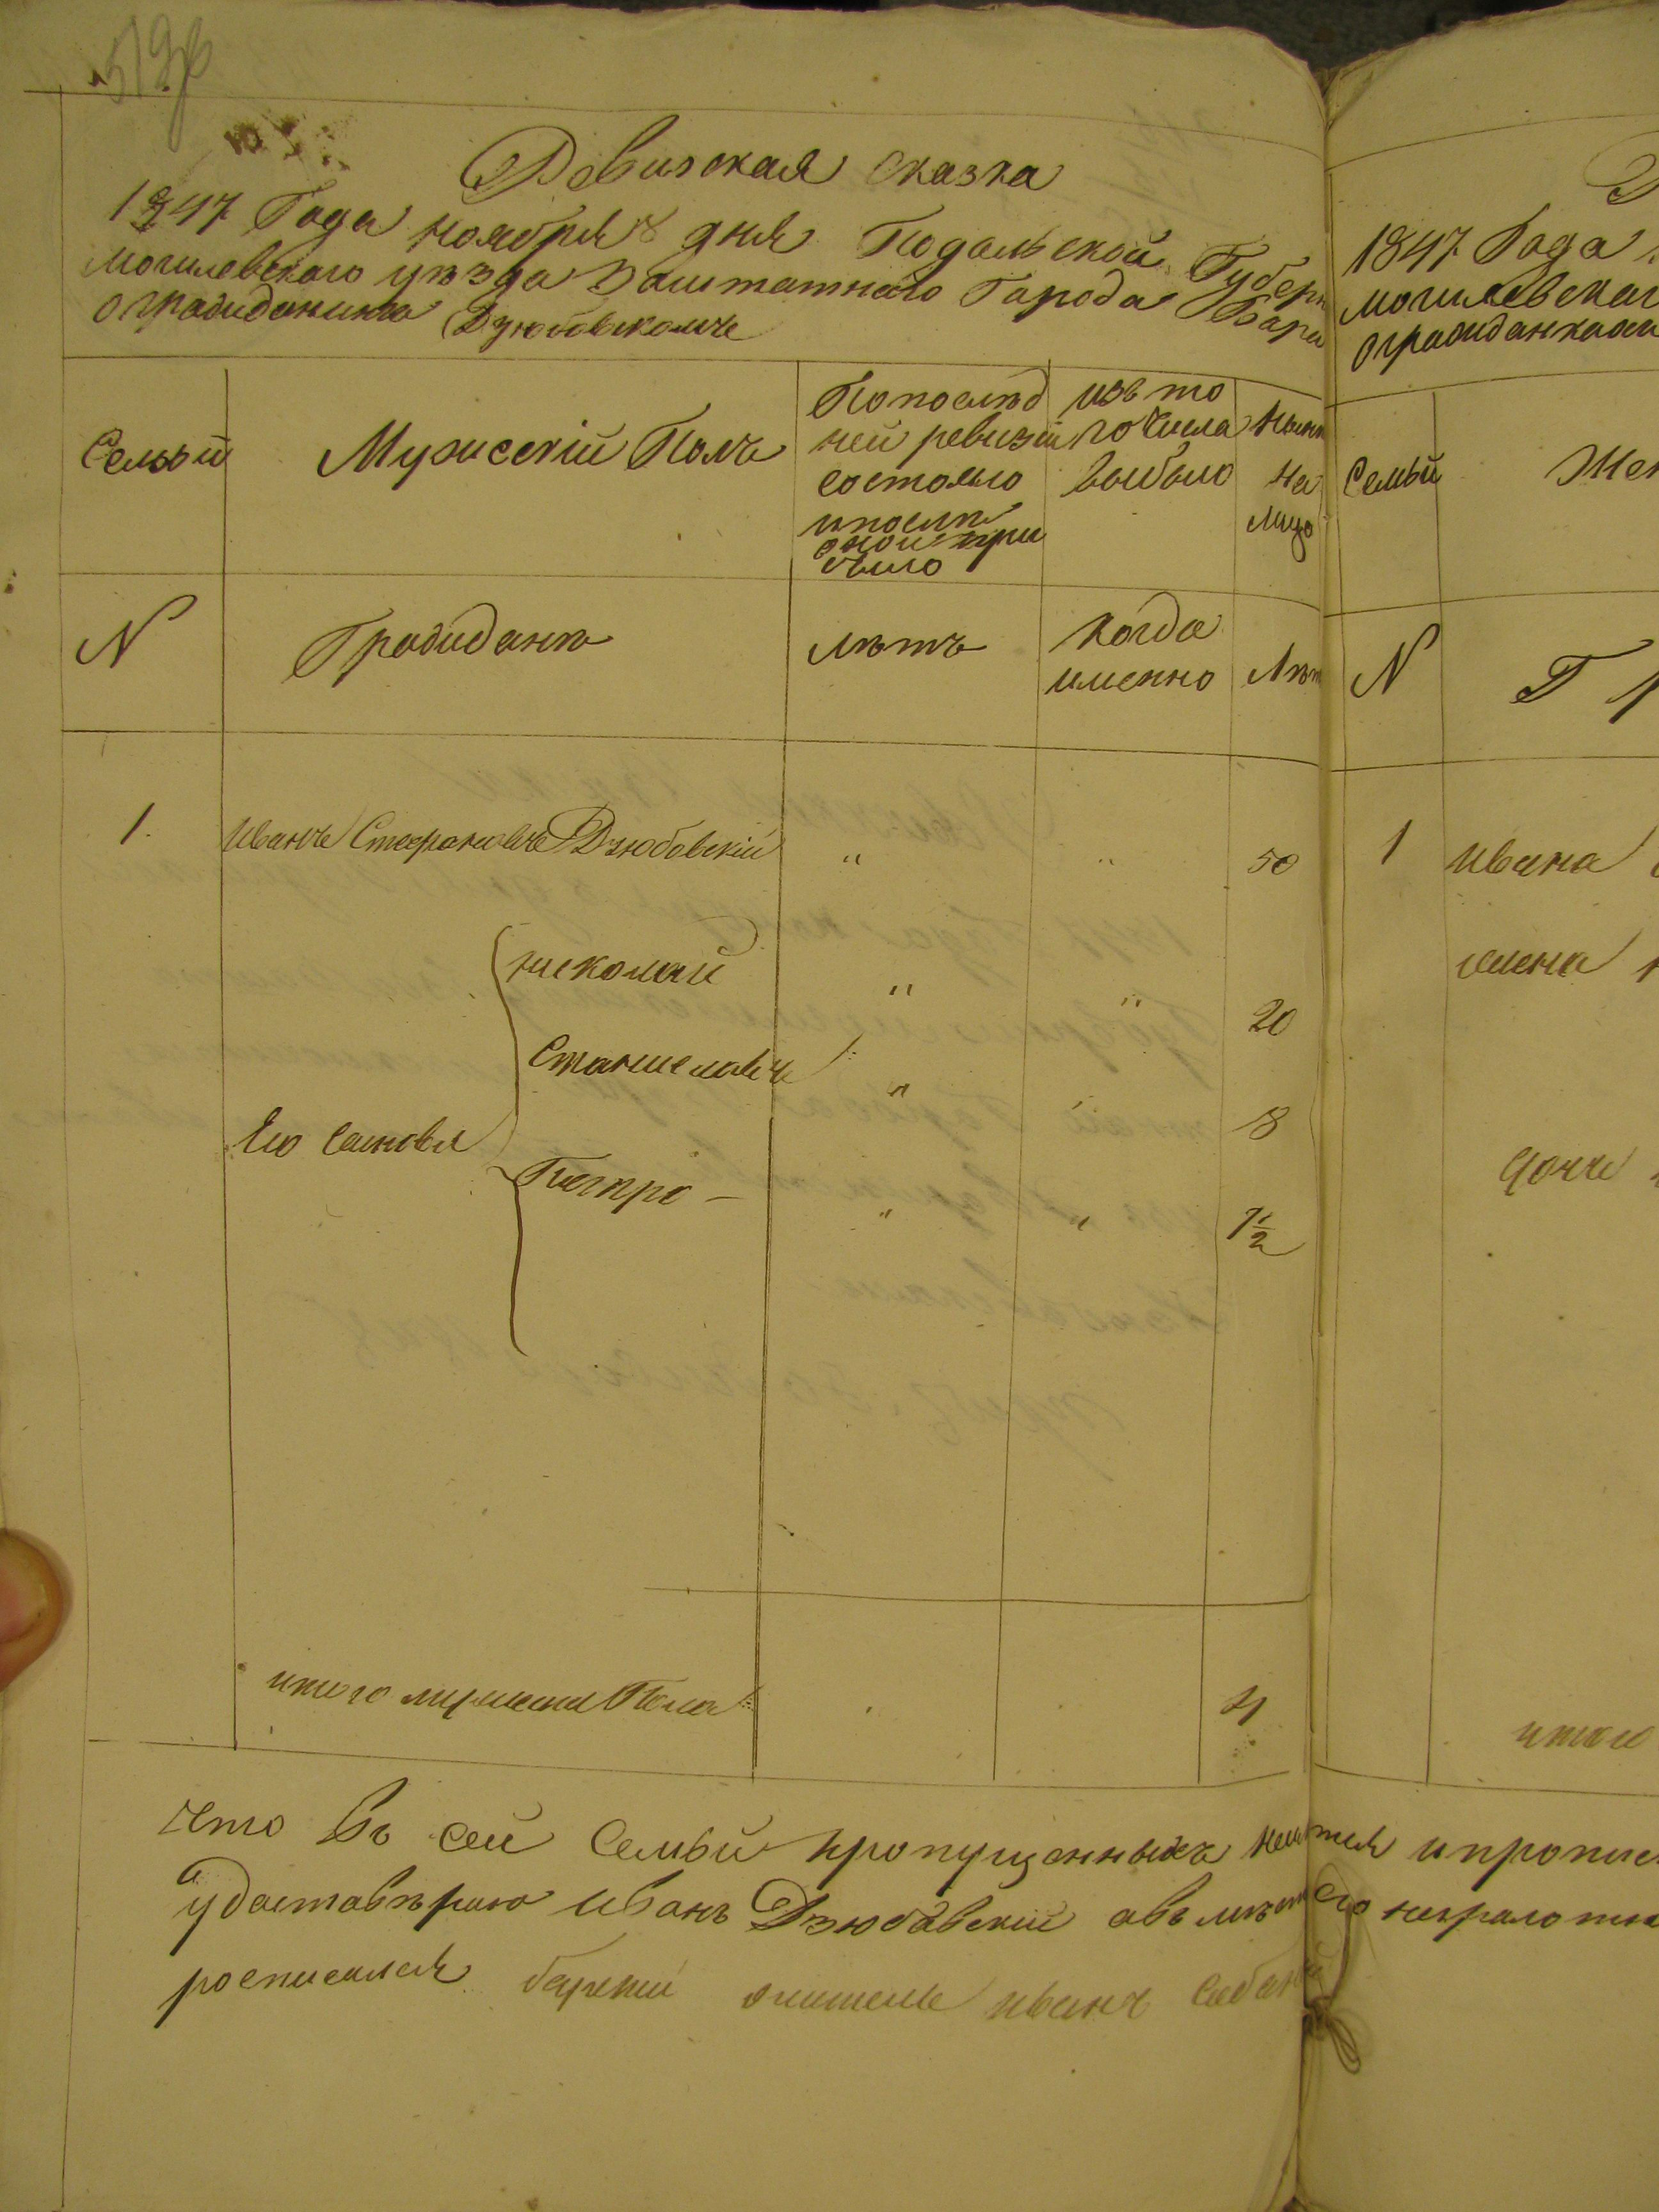 519
Ревизская сказка
1847 Года ноября 8 дня Подольской Губерн
могилевского уѣзда Заштатнаго Города Бара
о гражданинѣ Дзюбовскомъ
Семьи
Мужескій Полъ
Попослѣд
ней ревизіи
состояло
ипослѣ
оной при
было
изъ то
го Числа
выбыло
Нынѣ
на
Лицо
N
Граждане
лѣтъ
когда
именно
Лѣт
1.
Иванъ Стефановъ Дзюбовскій " " 50
николай " " 20
Станиславъ " 8
Его Сыновья
Петро — " " 1½
итого мужеска Пола 4
что въ сей Семьи пропущенныхъ ипропис
удоставѣраю Иванъ Дзюбавскій авъмѣсто его неграмотна
росписался Иванъ
1847 Года
могилевскаг
огражданках
Семьи
Жен
N
Г
1
Ивана
жена
дочь
итого